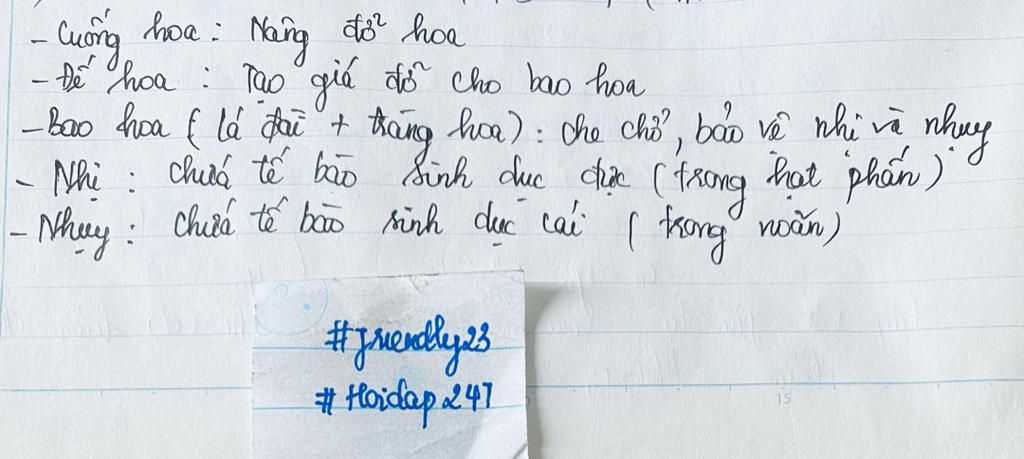 - Cuống hoa : Nâng đỡ hoa
- Đế hoa : Tạo giá đỡ cho bao hoa
- Bao hoa ( lá đài + tràng hoa) : che chở, bảo vệ nhị và nhụy
- Nhị : chứa tế bào sinh dục đực ( trong hạt phấn )
- Nhụy : chứa tế bào sinh dục cái ( trong noãn)
#friendly23
# Hoidap 247
15